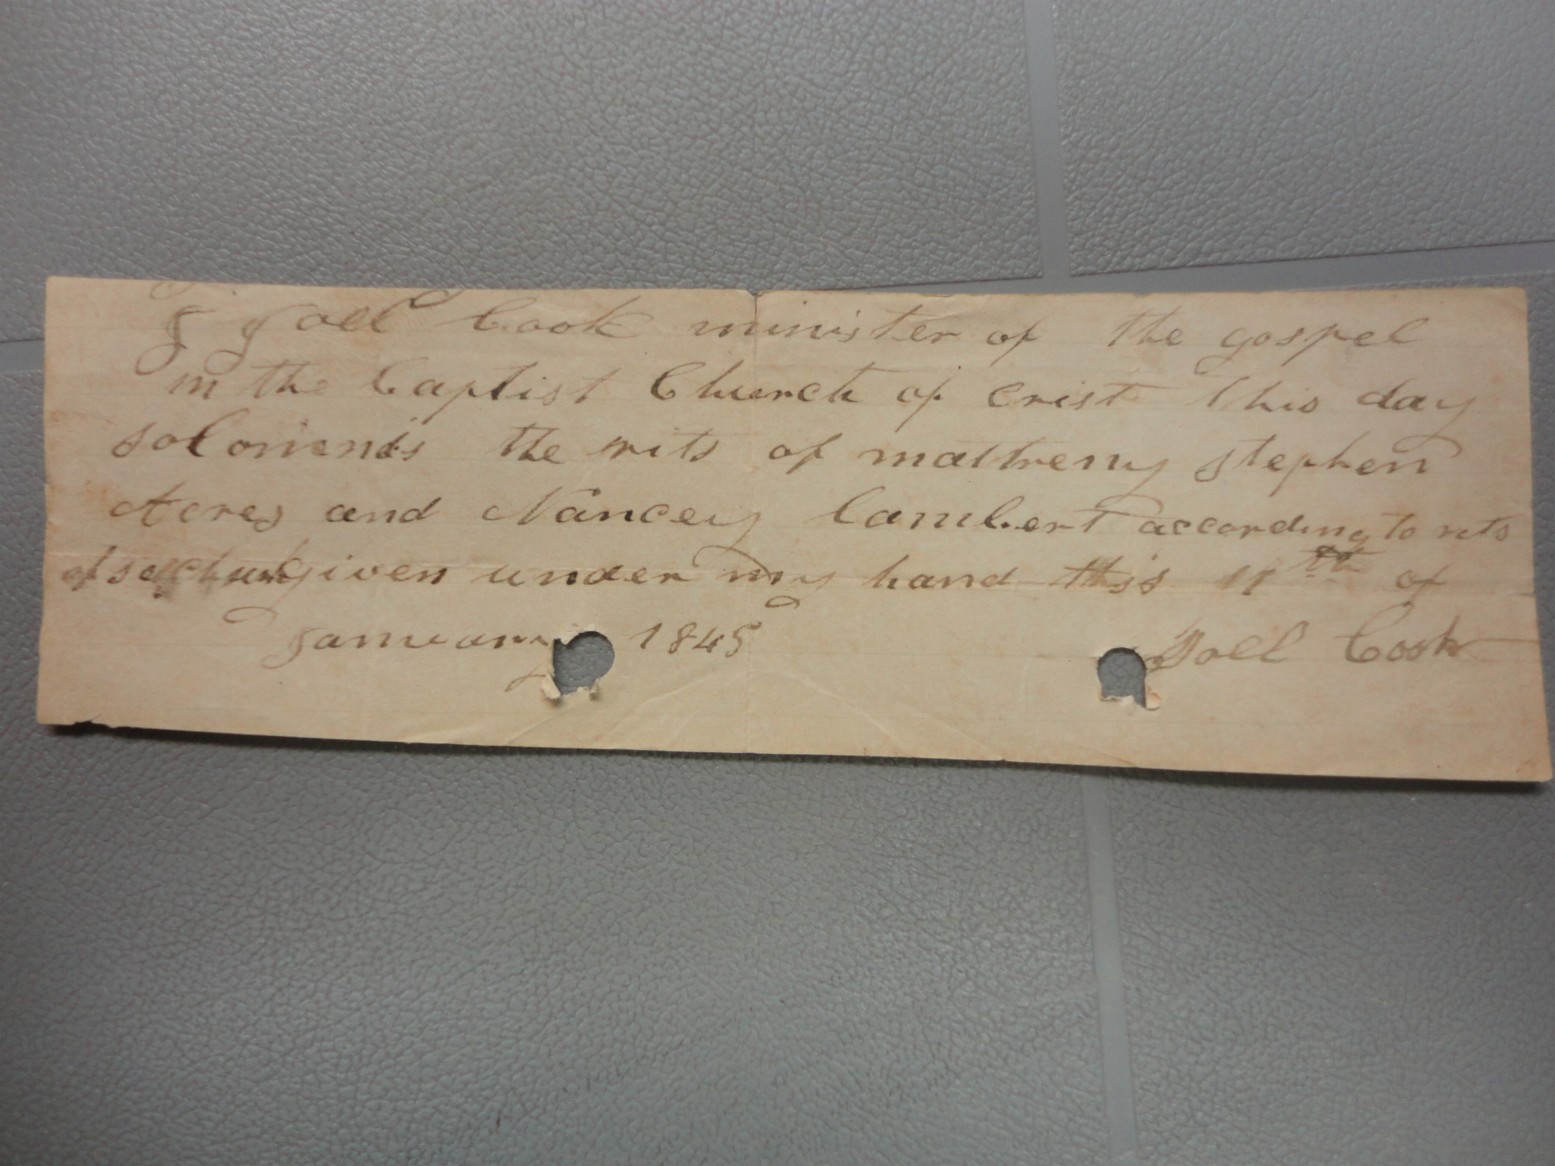 I Joel Cook minister of the gospel
in the Baptist Church of Crist this day
the rits of stephen
Acres and Nancey Lambert according to rits
of said given under my hand this 11th of
January 1845 Joel Cook